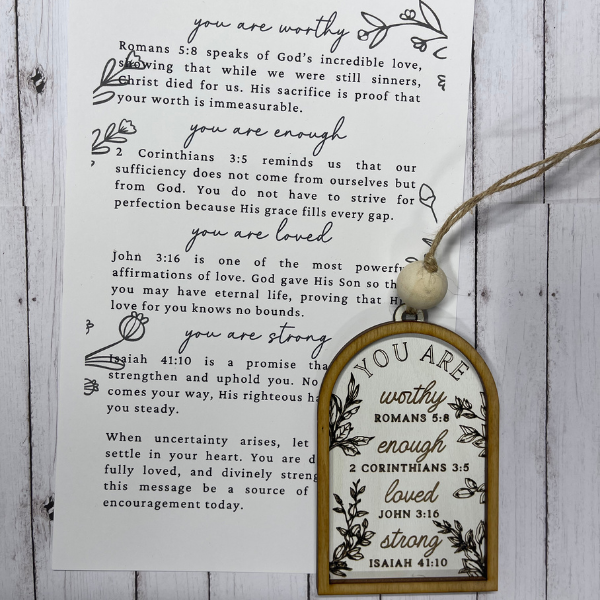 you are worthy
Romans 5:8 speaks of God's incredible love,
showing that while we were still sinners,
Christ died for us. His sacrifice is proof that
your worth is immeasurable.
you are enough
2 Corinthians 3:5 reminds us that our
sufficiency does not come from ourselves but
from God. You do not have to strive for
perfection because His grace fills every gap.
you are loved
John 3:16 is one of the most
affirmations of love. God gave His Son so
you may have eternal life, proving that
love for you knows no bounds.
you are strong
Isaiah 41:10 is a promise
strengthen and uphold you. No
comes your way, His righteous
you steady.
When uncertainty arises, let
settle in your heart. You are
fully loved, and divinely
this message be a source of
encouragement today.
YOU ARE
worthy
ROMANS 5:8
enough
2 CORINTHIANS 3:5
loved
JOHN 3:16
strong
ISAIAH 41:10